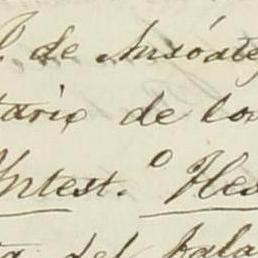 de Ansóate
tario de los
Intest.º Hes
ta del pala